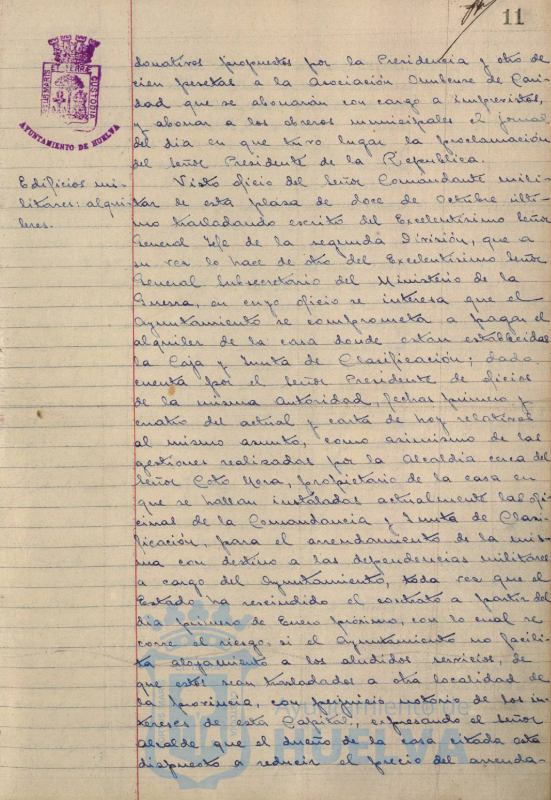 11
PORTUS MARIS ET TERRE CUSTODIA
AYUNTAMIENTO DE HUELVA
donativos propuestos por la Presidencia y otro de
cien pesetas a la Asociación Onubense de Cari-
dad que se abonarán con cargo a imprevistos,
y abonar a los obreros municipales el jornal
del dia en que tuvo lugar la proclamación
del Señor Presidente de la Republica.
Edificios mi-
litares: alqui-
leres.
Visto oficio del Señor Comandante mili-
tar de esta plaza de doce de Octubre últi-
mo trasladando escrito del Excelentisimo Señor
General Jefe de la segunda División, que a
su vez lo hace de otro del Excelentisimo Señor
General Subsecretario del Ministerio de la
Guerra, en cuyo oficio se interesa que el
Ayuntamiento se comprometa a pagar el
alquiler de la casa donde estan establecidas
la Caja y Junta de Clasificación; dada
cuenta por el Señor Presidente de oficios
de la misma autoridad, fechas primero y
cuatro del actual y carta de hoy relativos
al mismo asunto, como asimismo de las
gestiones realizadas por la Alcaldia cerca del
Señor Coto Mora, propietario de la casa en
que se hallan instaladas actualmente las ofi-
cinas de la Comandancia y Junta de Clasi-
ficación, para el arrendamiento de la mis-
ma con destino a las dependencias militares
a cargo del Ayuntamiento, toda vez que el
Estado ha rescindido el contrato a partir del
dia primero de Enero próximo, con lo cual se
corre el riesgo, si el Ayuntamiento no facili-
ta alojamiento a los aludidos servicios, de
que estos sean trasladados a otra localidad de
la provincia, con perjuicio notorio de los in-
tereses de esta Capital, expresando el señor
alcalde que el dueño de la casa citada esta
dispuesto a reducir el precio del arrenda-
Ayuntamiento de
HUELVA